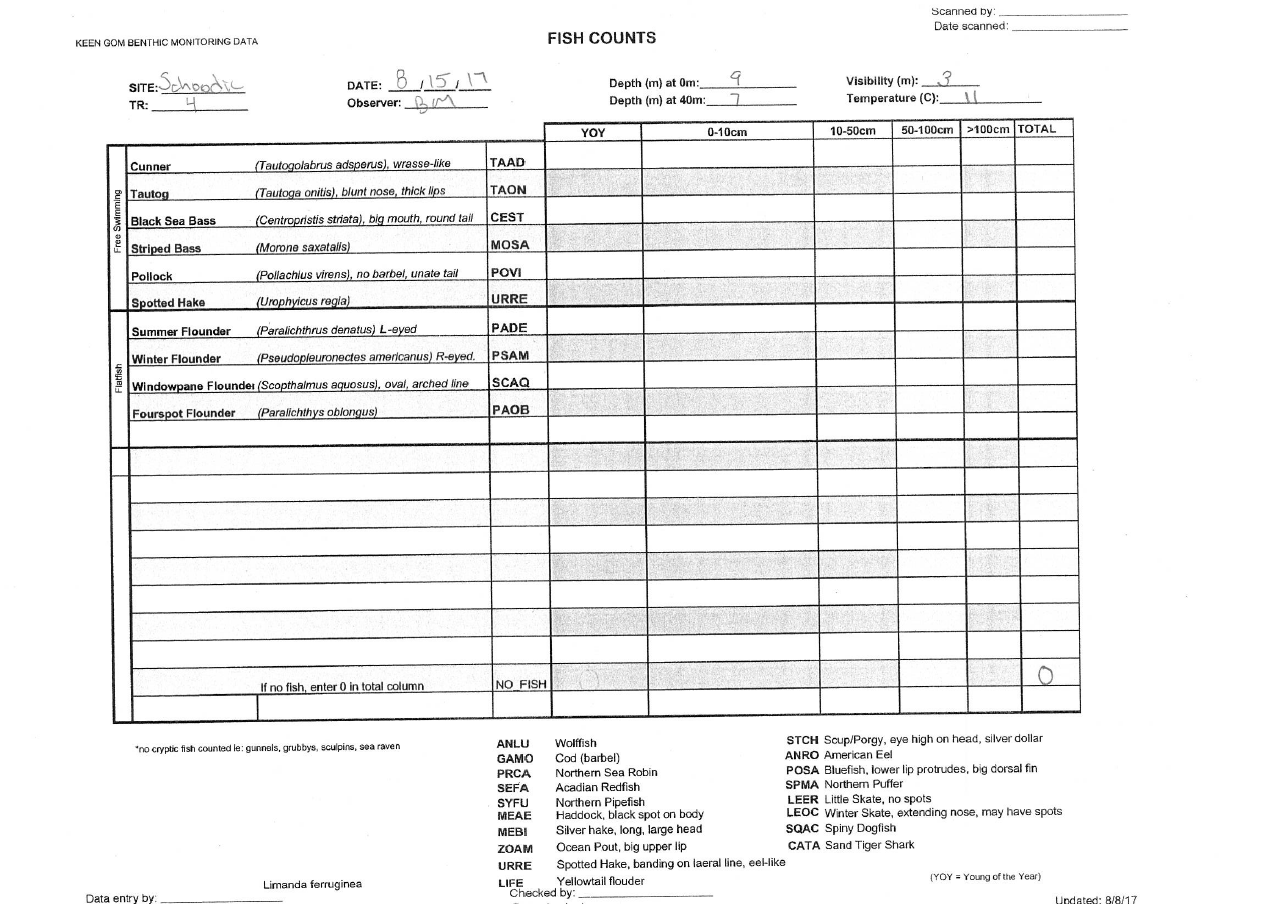 Scanned by: ____________
Date scanned: ____________
KEEN GOM BENTHIC MONITORING DATA
FISH COUNTS
SITE: Schoodic DATE: 8/15/17 Depth (m) at 0m: 9 Visibility (m): 3
TR: 4 Observer: BM Depth (m) at 40m: 7 Temperature (C): 11
YOY 0-10cm 10-50cm 50-100cm >100cm TOTAL
Free Swimming
Cunner (Tautogolabrus adsperus), wrasse-like TAAD
Tautog (Tautoga onitis), blunt nose, thick lips TAON
Black Sea Bass (Centropristis striata), big mouth, round tail CEST
Striped Bass (Morone saxatalis) MOSA
Pollock (Pollachius virens), no barbel, unate tail POVI
Spotted Hake (Urophyicus regia) URRE
Flatfish
Summer Flounder (Paralichthrus denatus) L-eyed PADE
Winter Flounder (Pseudopleuronectes americanus) R-eyed. PSAM
Windowpane Flounde (Scopthalmus aquosus), oval, arched line SCAQ
Fourspot Flounder (Paralichthys oblongus) PAOB
If no fish, enter 0 in total column NO FISH 0
*no cryptic fish counted ie: gunnels, grubbys, sculpins, sea raven
ANLU Wolffish
GAMO Cod (barbel)
PRCA Northern Sea Robin
SEFA Acadian Redfish
SYFU Northern Pipefish
MEAE Haddock, black spot on body
MEBI Silver hake, long, large head
ZOAM Ocean Pout, big upper lip
URRE Spotted Hake, banding on laeral line, eel-like
LIFE Yellowtail flouder
STCH Scup/Porgy, eye high on head, silver dollar
ANRO American Eel
POSA Bluefish, lower lip protrudes, big dorsal fin
SPMA Northern Puffer
LEER Little Skate, no spots
LEOC Winter Skate, extending nose, may have spots
SQAC Spiny Dogfish
CATA Sand Tiger Shark
(YOY = Young of the Year)
Limanda ferruginea
Data entry by: ____________ Checked by: ____________ Updated: 8/8/17